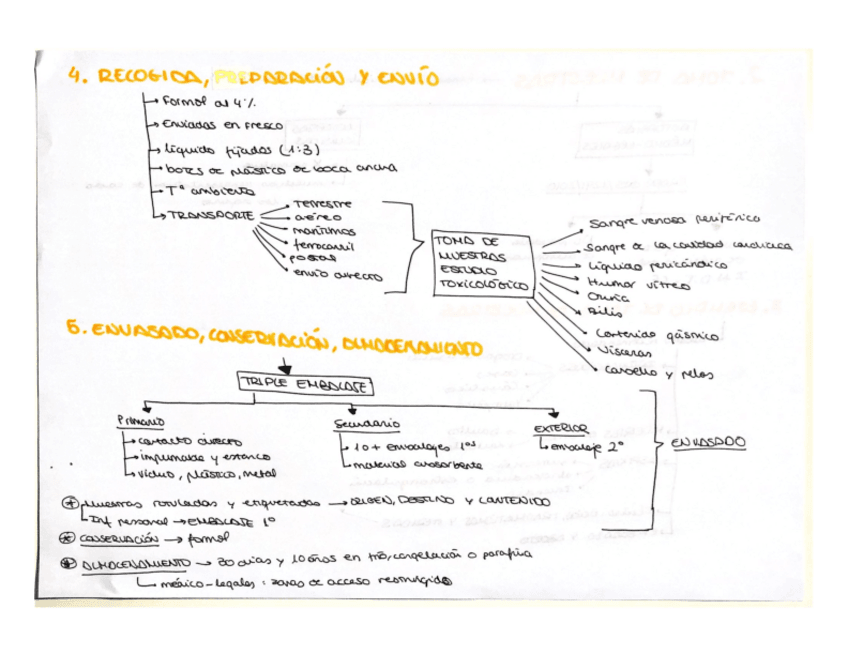 4. RECOGIDA, PREPARACIÓN Y ENVÍO
→ Formol al 4%
→ Enviadas en fresco
→ líquido fijados (1:3)
→ botes de plástico de boca ancha
→ Tª ambiente
→ TRANSPORTE
Terrestre
aéreo
marítimos
ferrocarril
postal
envío directo
TOMA DE
MUESTRAS
ESTUDIO
TOXICOLÓGICO
Sangre venosa periférica
Sangre de la cavidad cardiaca
Líquido pericárdico
Humor vítreo
Orina
Bilis
Contenido gástrico
Vísceras
Cabello y pelos
5. ENVASADO, CONSERVACIÓN, ALMACENAMIENTO
TRIPLE EMBALAJE
Primario
→ contacto directo
→ impermeable y estanco
→ vidrio, plástico, metal
Secundario
10 + embalajes 1os
material absorbente
EXTERIOR
embalaje 2º
ENVASADO
* Muestras rotuladas y etiquetadas → ORIGEN, DESTINO Y CONTENIDO
Inf personal → EMBALAJE 1º
* CONSERVACIÓN → formol
* ALMACENAMIENTO → 30 dias y 10 años en frío, congelación o parafina
médico-legales: zonas de acceso restringido